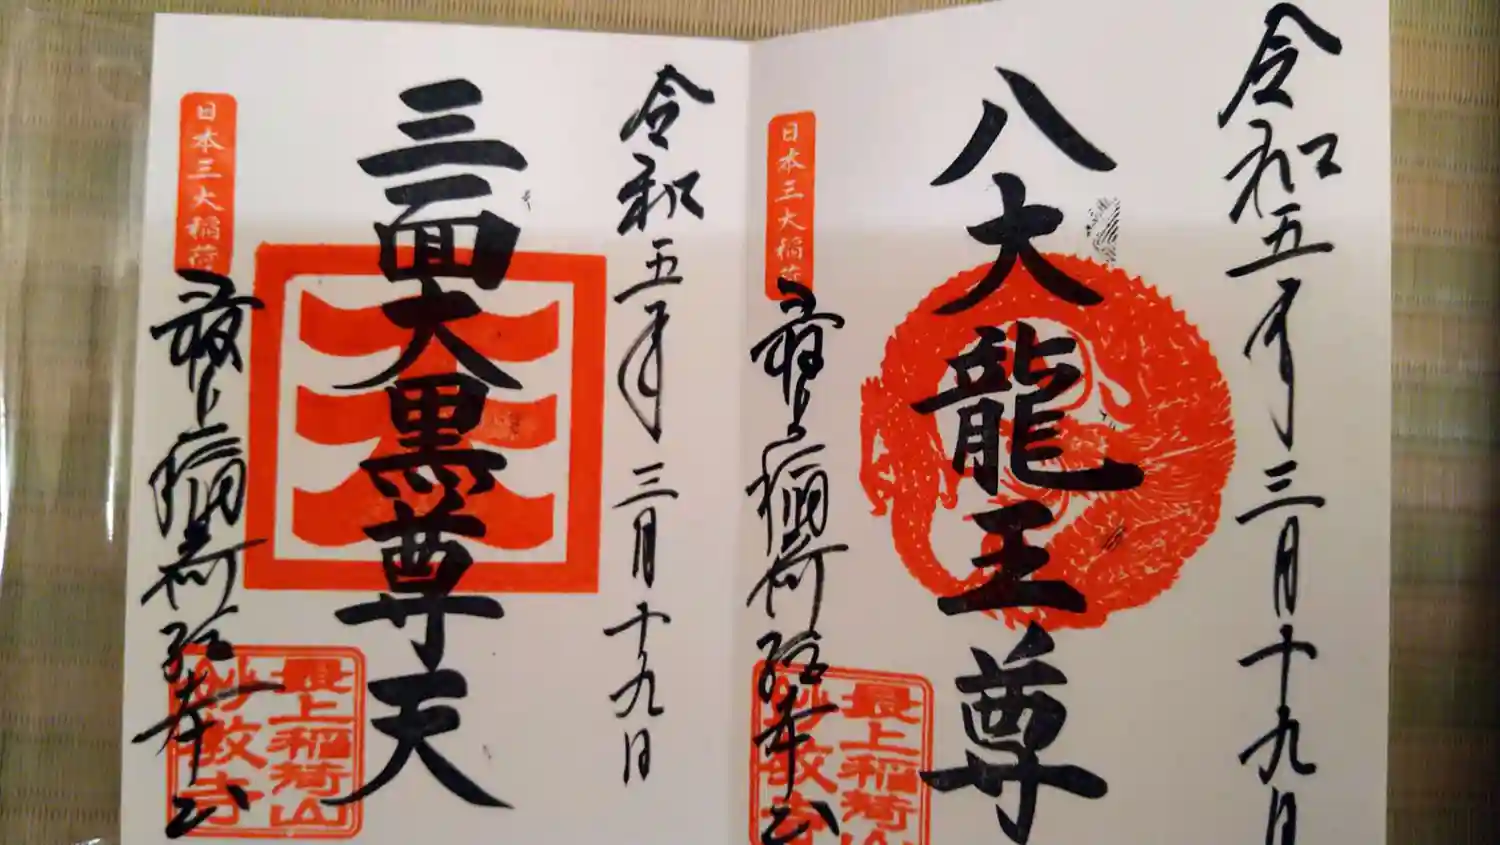 令和五年三月十九日
八大龍王尊
日本三大稲荷
最上稲荷
最上稲荷山
妙教寺
令和五年三月十九日
三面大黒尊天
日本三大稲荷
最上稲荷
最上稲荷山
妙教寺